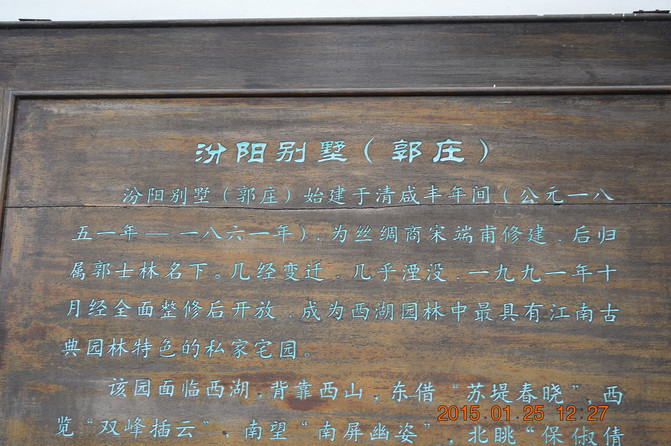 汾阳别墅（郭庄）
汾阳别墅（郭庄）始建于清咸丰年间（公元一八
五一年—一八六一年），为丝绸商宋端甫修建，后归
属郭士林名下。几经变迁，几乎湮没，一九九一年十
月经全面整修后开放，成为西湖园林中最具有江南古
典园林特色的私家宅园。
该园面临西湖，背靠西山，东借“苏堤春晓”，西
览“双峰插云”，南望“南屏幽姿”，北眺“保俶倩
2015.01.25 12:27